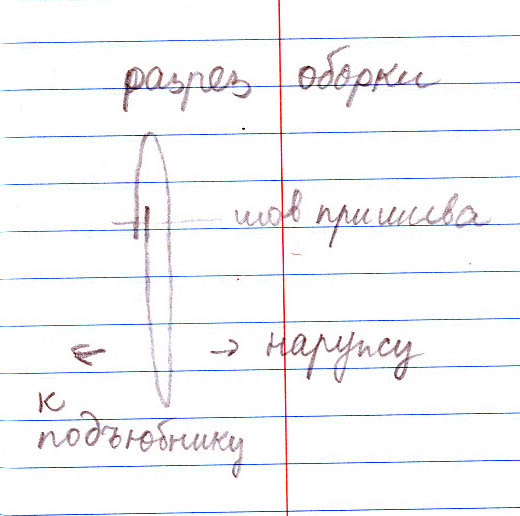 разрез оборки
шов пришива
наружу
к
подъюбнику